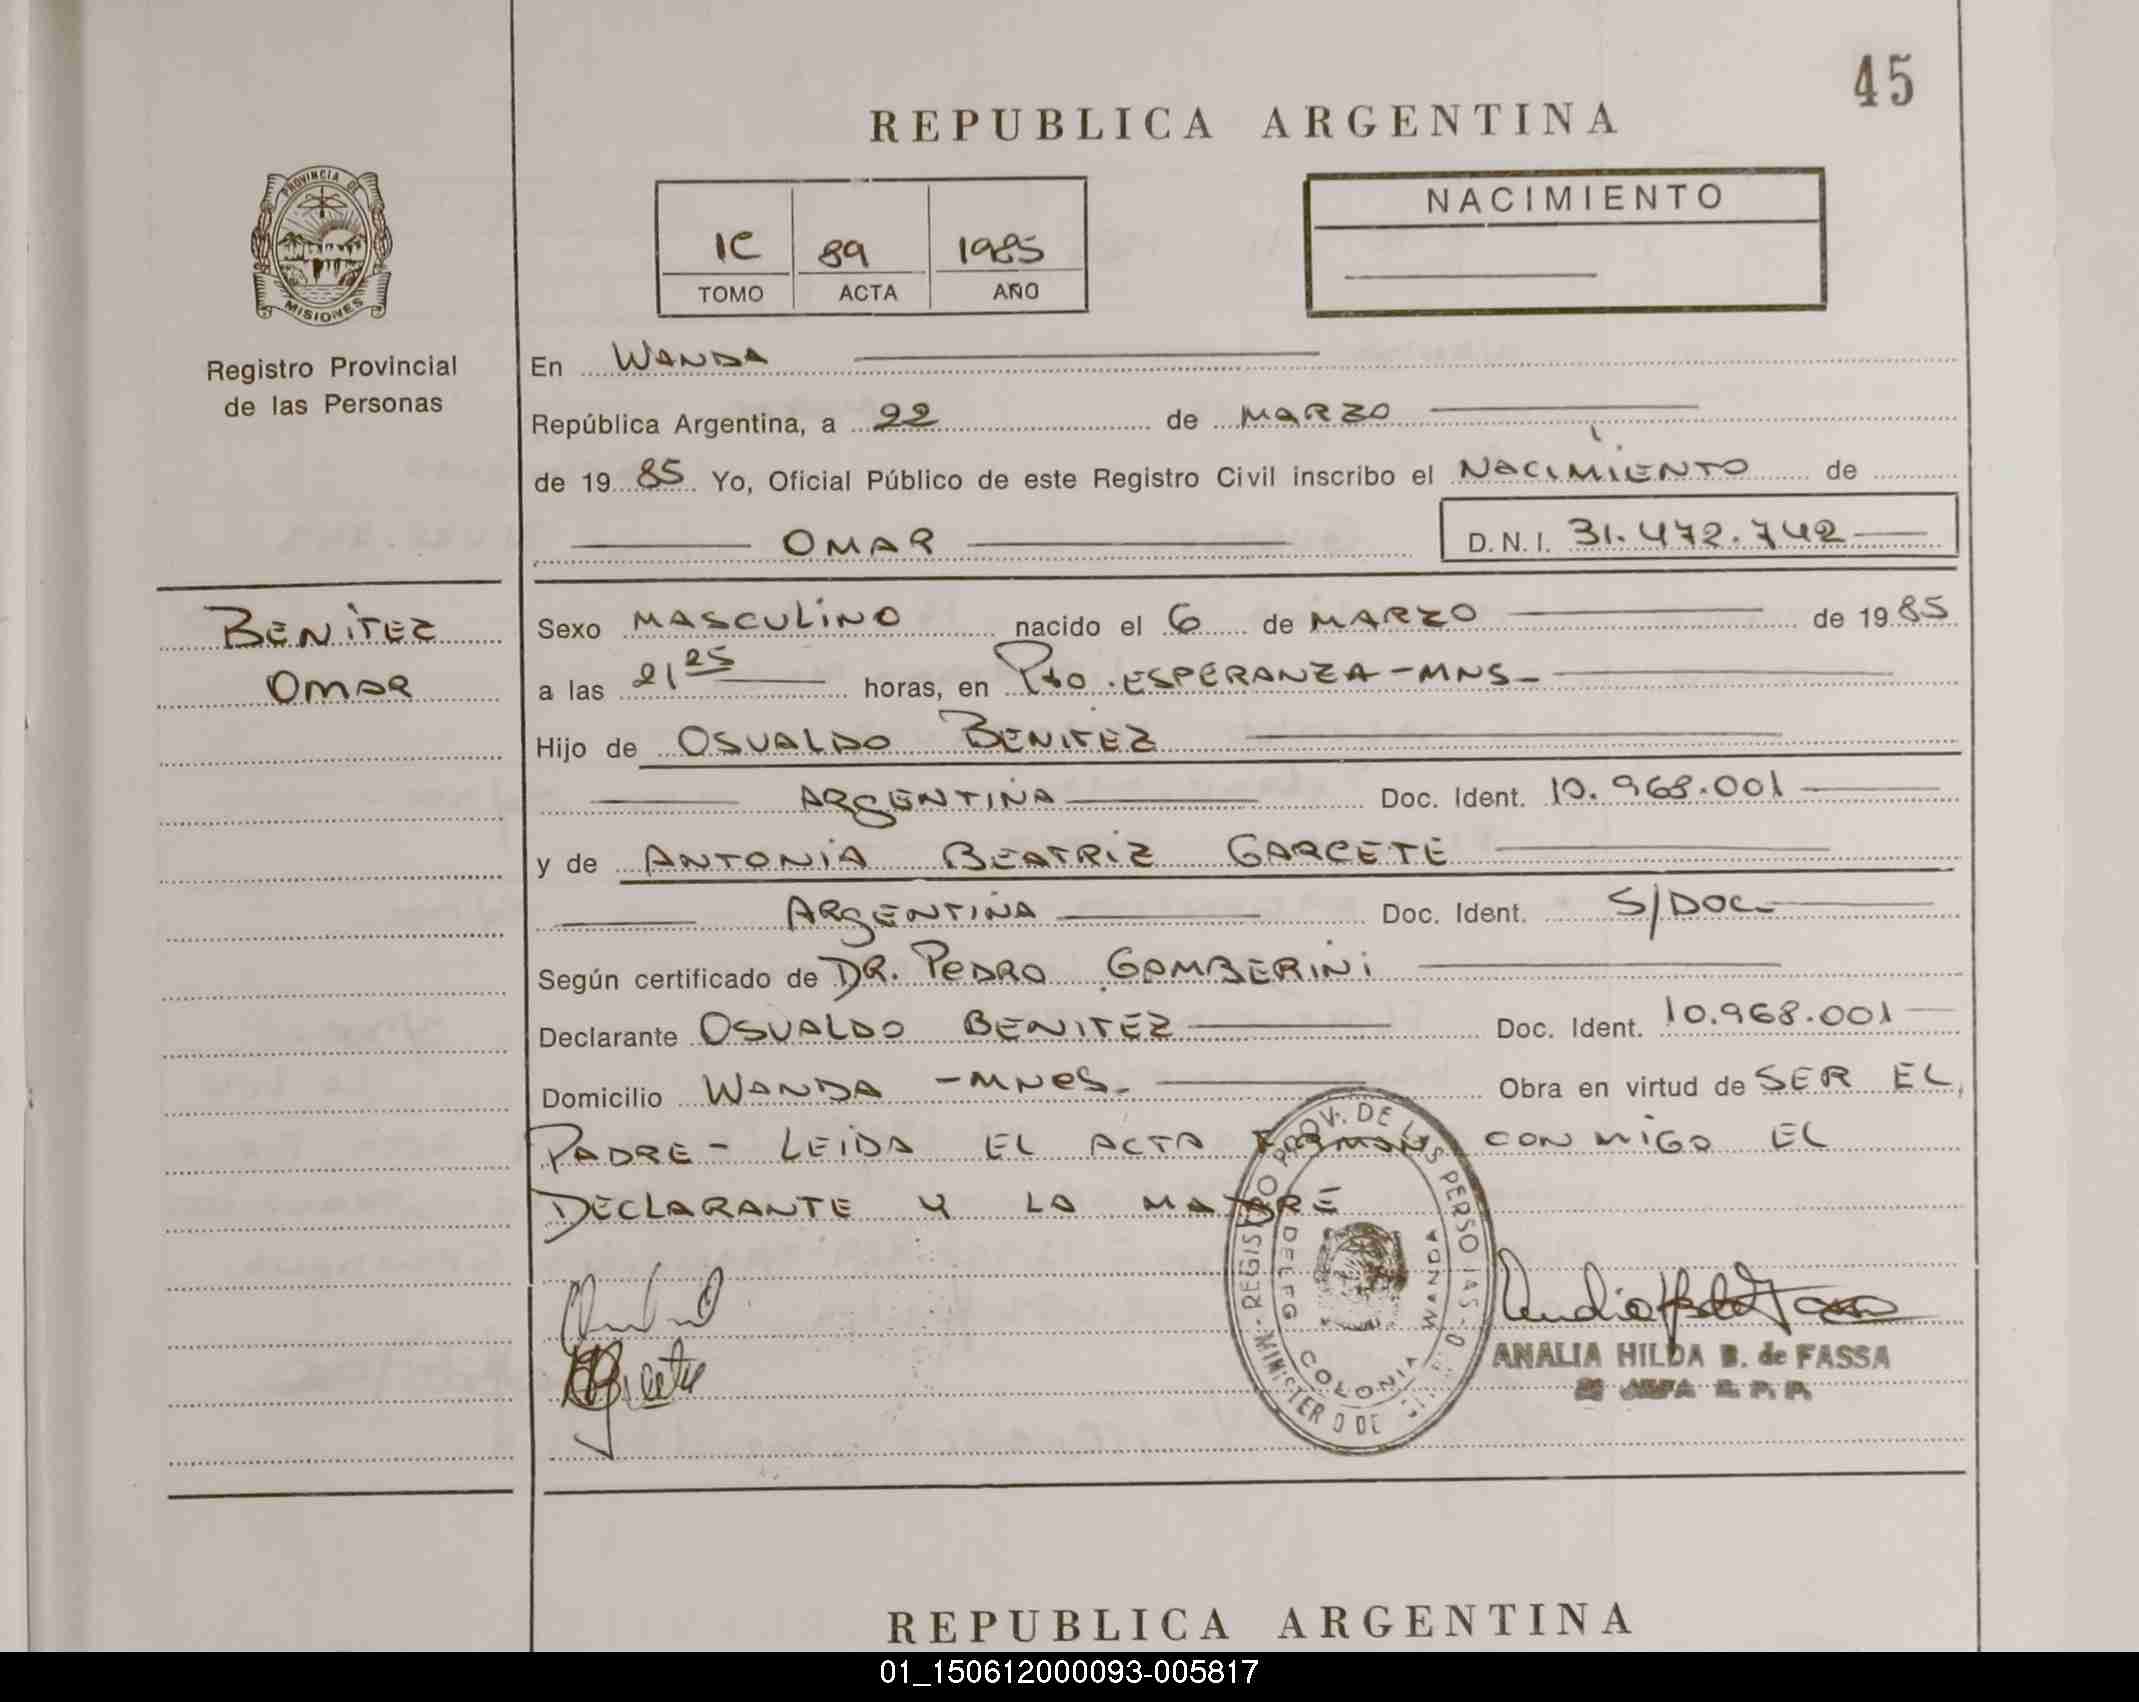 45
REPUBLICA ARGENTINA
PROVINCIA DE
MISIONES
Registro Provincial
de las Personas
1C 89 1985
TOMO ACTA AÑO
NACIMIENTO
En WANDA
República Argentina, a 22 de MARZO
de 1985 Yo, Oficial Público de este Registro Civil inscribo el NACIMIENTO de
OMAR D.N.I. 31.472.742
BENITEZ
OMAR
Sexo MASCULINO nacido el 6 de MARZO de 1985
a las 21 25 horas, en Pto. ESPERANZA-MNS-
Hijo de OSVALDO BENITEZ
ARGENTINA Doc. Ident. 10.968.001
y de ANTONIA BEATRIZ GARCETE
ARGENTINA Doc. Ident. S/DOC
Según certificado de DR. PEDRO GAMBERINI
Declarante OSVALDO BENITEZ Doc. Ident. 10.968.001
Domicilio WANDA -MNES- Obra en virtud de SER EL
PADRE- LEIDA EL ACTA FIRMAN CONMIGO EL
DECLARANTE Y LA MADRE
REGISTRO PROV. DE LAS PERSONAS
DELEG COLONIA WANDA
MINISTERIO DE
ANALIA HILDA B. de FASSA
JEFA R.P.P.
REPUBLICA ARGENTINA
01_150612000093-005817